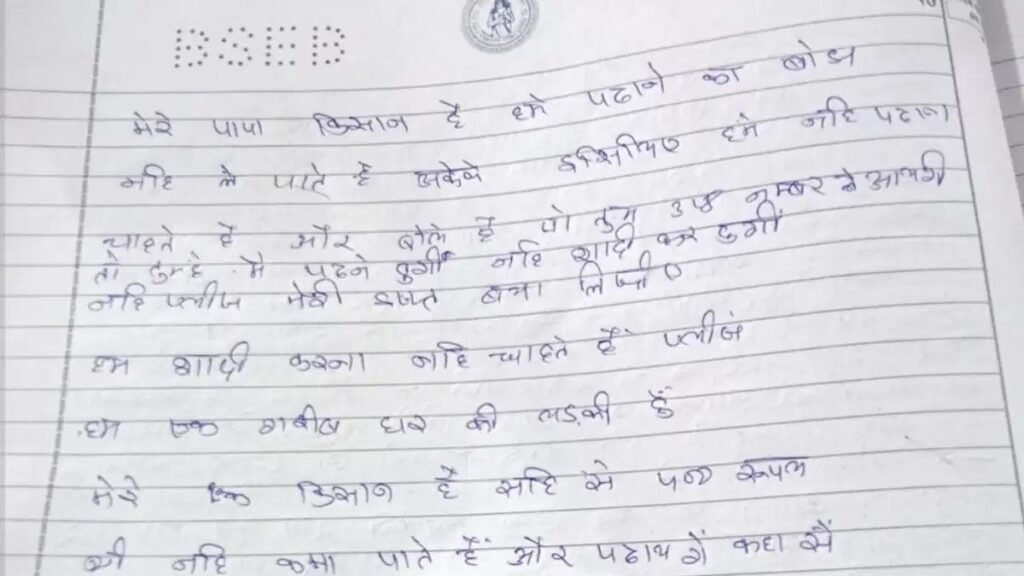 BSEB
मेरे पापा किसान है हमे पढाने का बोझ
नहि ले पाते है इसिलिए हमे नहि पढाना
चाहते है और बोले है नम्बर से आयगी
तो तुम्हे मै पढने दुगीं नहि शादी कर दुगीं
नहि प्लीज मेरी इज्जत बचा लिजीए
हम शादी करना नहि चाहते हैं प्लीजं
हम एक गरीब घर की लड़की हूँ
मेरे एक किसान है सहि से पन्द्र रूपया
भी नहि कमा पाते हैं और पढायगें कहा सें